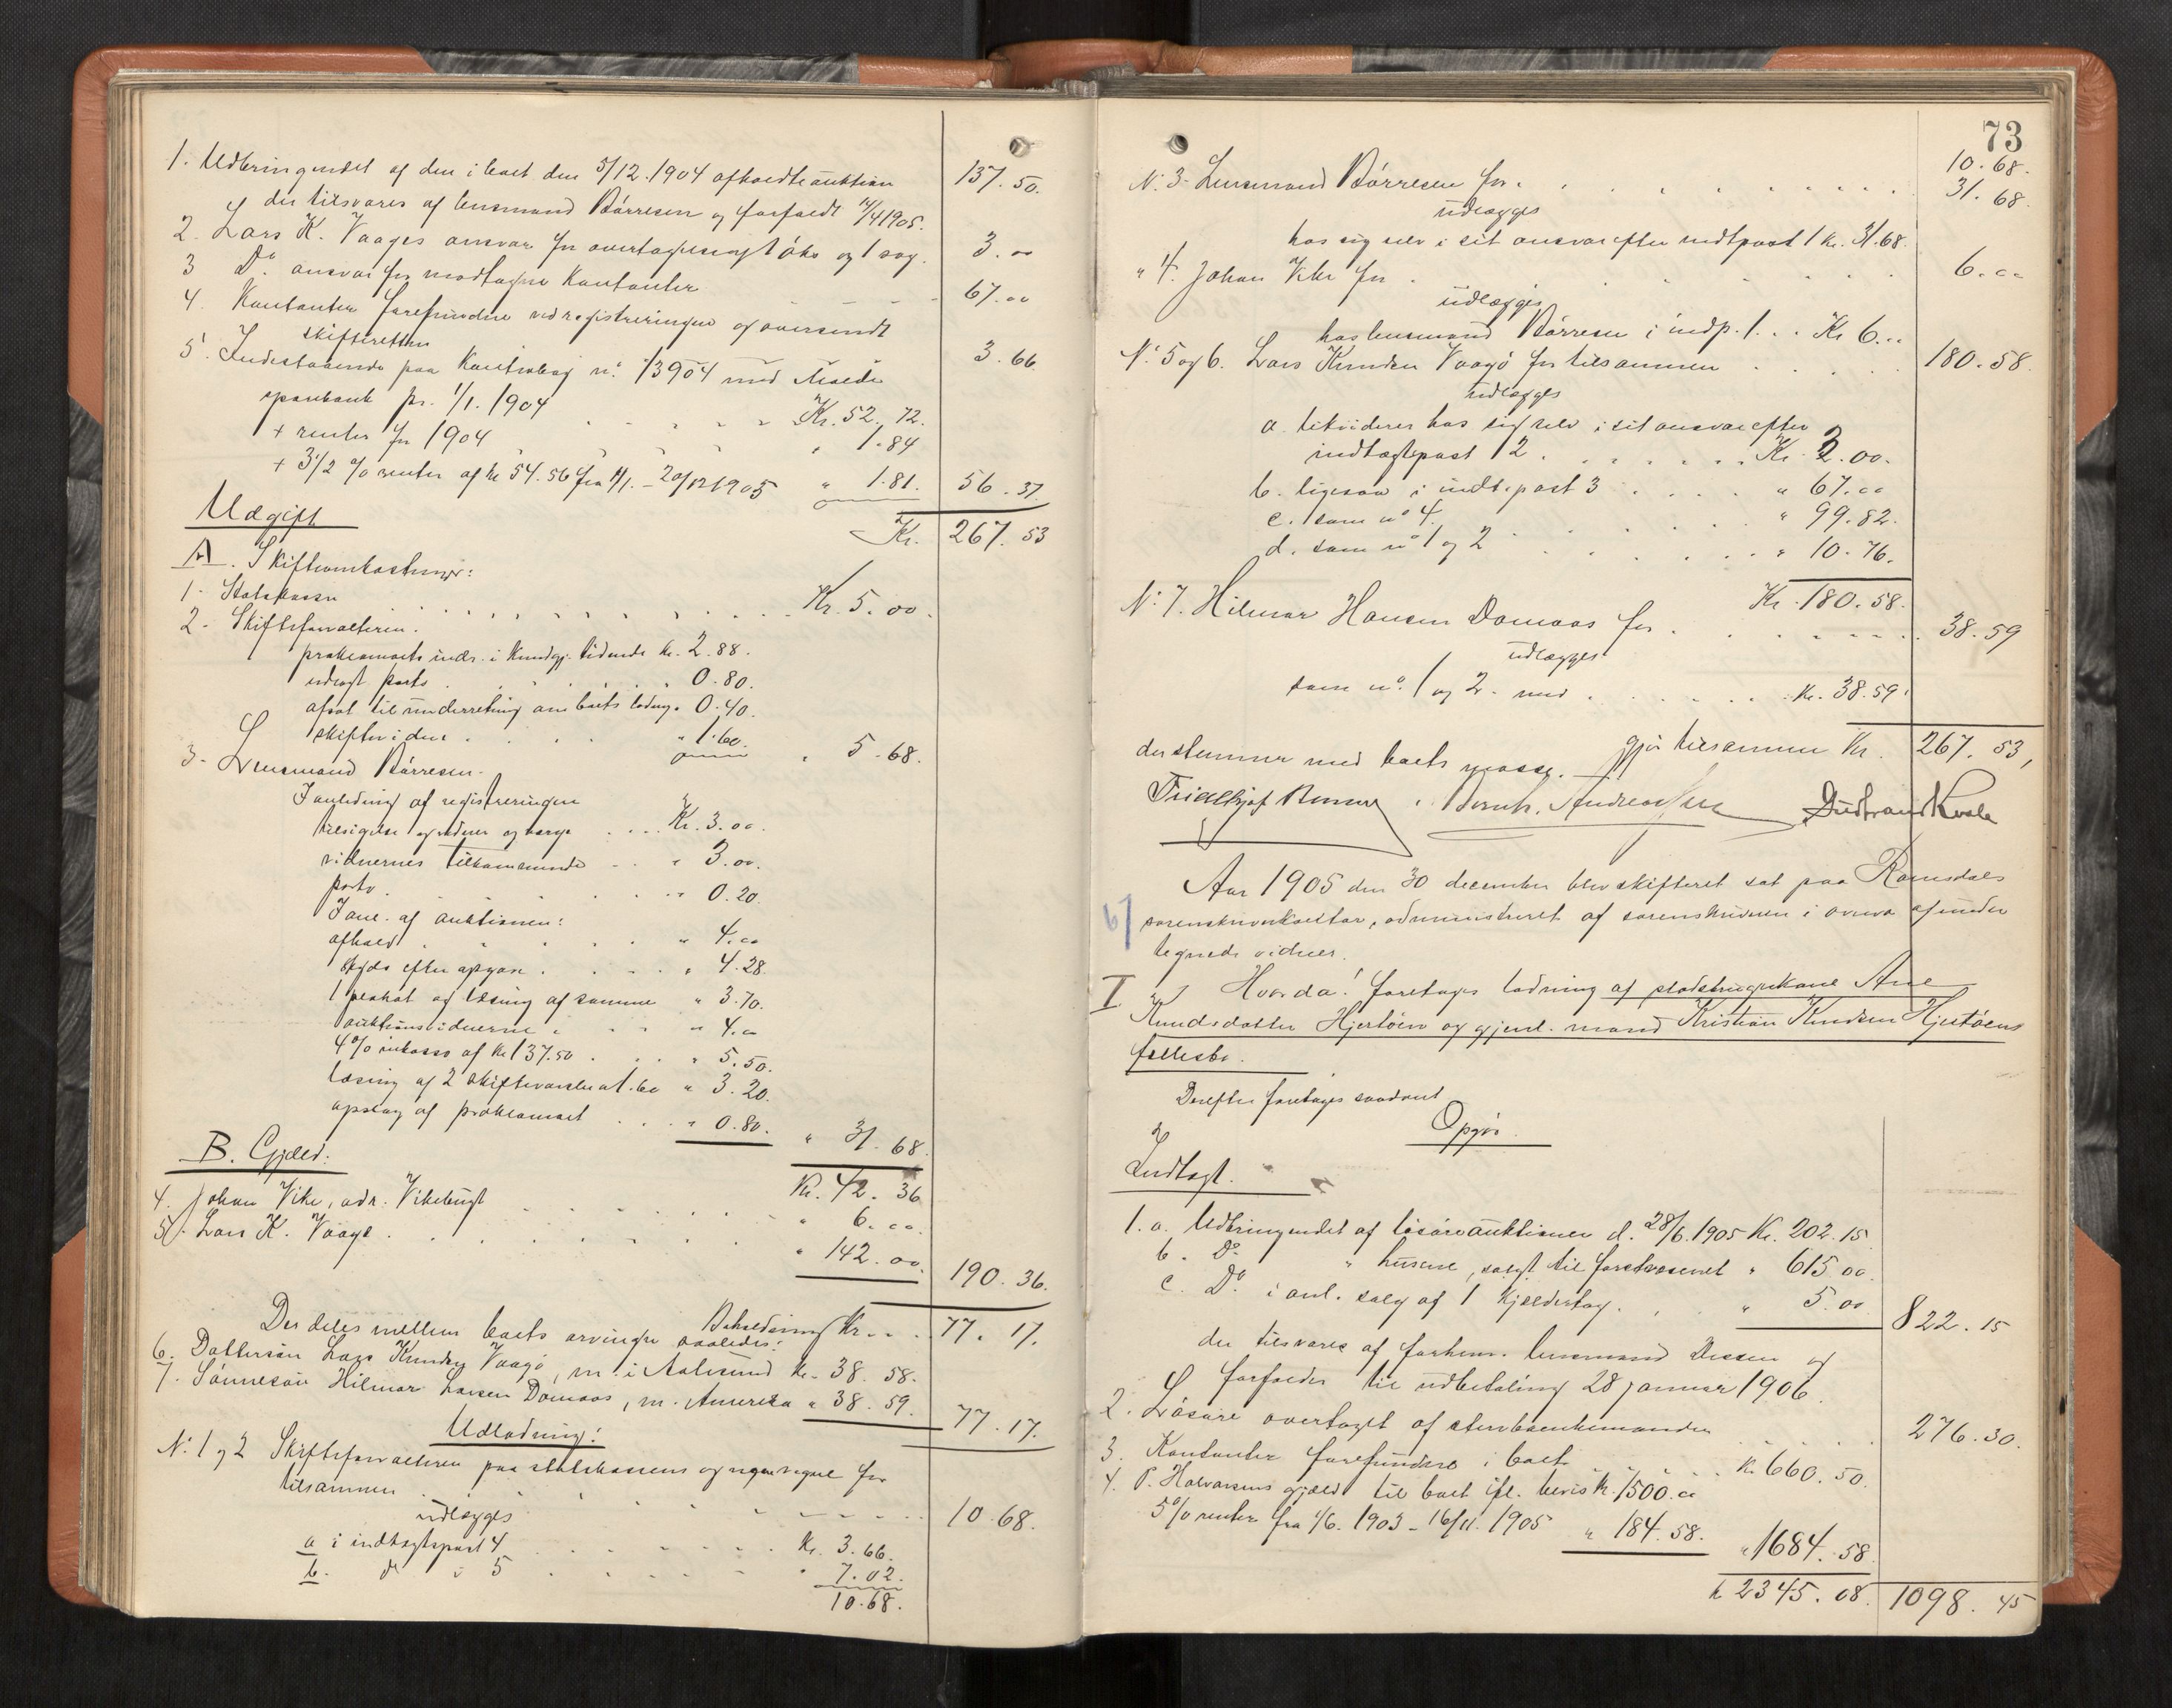 1. Udbringendet af den i boet den 5/12.1904 afholdte auktion 137.50.
der tilsvares af lensmand Børresen og forfaldt 14/4 1905.
2. Lars K. Vaages ansvar for overtagelse af 1 øks og 1 sag. 3.00
3 Do ansvar for modtagne Kontanter 67.00
4. Kontanter forefundne ved registreringen og oversendt
skifteretten 3.66
5. Indestaaende paa Kontrabog no. 13904 med Molde
sparebank pr. 1/1. 1904 Kr. 52.72.
+ renter for 1904 " 1.84
+ 3 1/2 % renter af kr 54.56 fra 1/1. - 20/12 1905 " 1.81. 56.37.
Kr. 267.53
Udgift
A. Skifteomkostninger:
1. Statskassen Kr. 5.00.
2. Skifteforvalteren.
proklamaets indr. i Kundgj. tidende kr. 2.88.
udlagt porto 0.80.
afsat til underretning om boets lodng. 0.40.
skiftevidner " 1.60. " 5.68.
3. Lensmand Børresen.
I anledning af registreringen
tilsigelse af vidner og værge Kr. 3.00.
vidnernes tilkommende " 3.00.
porto " 0.20.
I anl. af auktionen:
afhold " 4.00
skyds efter opgave " 4.28.
1 plakat og læsning af samme " 3.70.
auktionsvidnerne " 4.00
4% inkasso af kr 137.50 " 5.50.
læsning af 2 skiftevarsler a 1.60 " 3.20.
opslag af proklamaet " 0.80. " 31.68.
Kr. 42.36
B. Gjæld:
4. Johan Vike, adr. Vikebugt " 6.00.
5. Lars K. Vaage " 142.00. 190.36.
Beholdning Kr. 77.17.
Der deles mellem boets arvinger saaledes:
6. Dattersøn Lars Knudsen Vaagø, m. i Aalesund kr. 38.58.
7. Sønnesøn Hilmar Hansen Domaas, m. Amerika " 38.59. 77.17.
Udlodning:
No 1 og 2 Skifteforvalteren paa statskassens og egne vegne for
tilsammen 10.68.
udlægges
a i indtægtspost 4 Kr. 3.66.
b. do i 5 " 7.02.
10.68.
73
10.68.
No. 3. Lensmand Børresen for 31.68.
udlægges
hos sig selv i sit ansvar efter indtpost 1 Kr. 31.68.
" 4. Johan Vike for 6.00
udlægges
hos lensmand Børresen i indp. 1 Kr 6.00
No. 5 og 6. Lars Knudsen Vaagø for tilsammen 180.58.
udlægges
a. likviderer hos sig selv i sit ansvar efter
indtægtspost 2 Kr. 3.00.
b. ligesaa i indt. post 3 " 67.00
c. som no 4. " 99.82.
d. som no 1 og 2 " 10.76.
Kr. 180.58.
No. 7. Hilmar Hansen Domaas for 38.59
udlægges
som no. 1 og 2. med Kr. 38.59.
gjør tilsammen Kr. 267.53,
der stemmer med boets masse.
Bernh. Andreassen Gudbrand Kvale
Aar 1905 den 30 december blev skifteret sat paa Romsdals
6) sorenskriverkontor, administreret af sorenskriveren i overvær af under
tegnede vidner.
I Hvorda: foretages lodning af pladsbrugerkone Ane
Knudsdatter Hjertøens og gjenl. mand Kristian Knudsen Hjertøens
fællesbo.
Derefter foretages saadant
Opgjør.
Indtægt.
1. a. Udbringendet af løsøreauktionen d. 28/6.1905 Kr. 202.15
b. Do " husene, solgt til forstvæsenet " 615.00.
c. Do i anl. salg af 1 kjeldertag " 5.00 822.15
der tilsvares af forhenv. lensmand Dessen og
forfalder til udbetaling 28 januar 1906.
2. Løsøre overtaget af sterboenkemanden 276.30.
3. Kontanter forefundne i boet kr. 660.50.
4. P. Halvorsens gjæld til boet ifl. bevis kr. 1500.00
5% renter fra 1/6. 1903 - 16/11. 1905 " 184.58. " 1684.58
k 2345.08. 1098.45